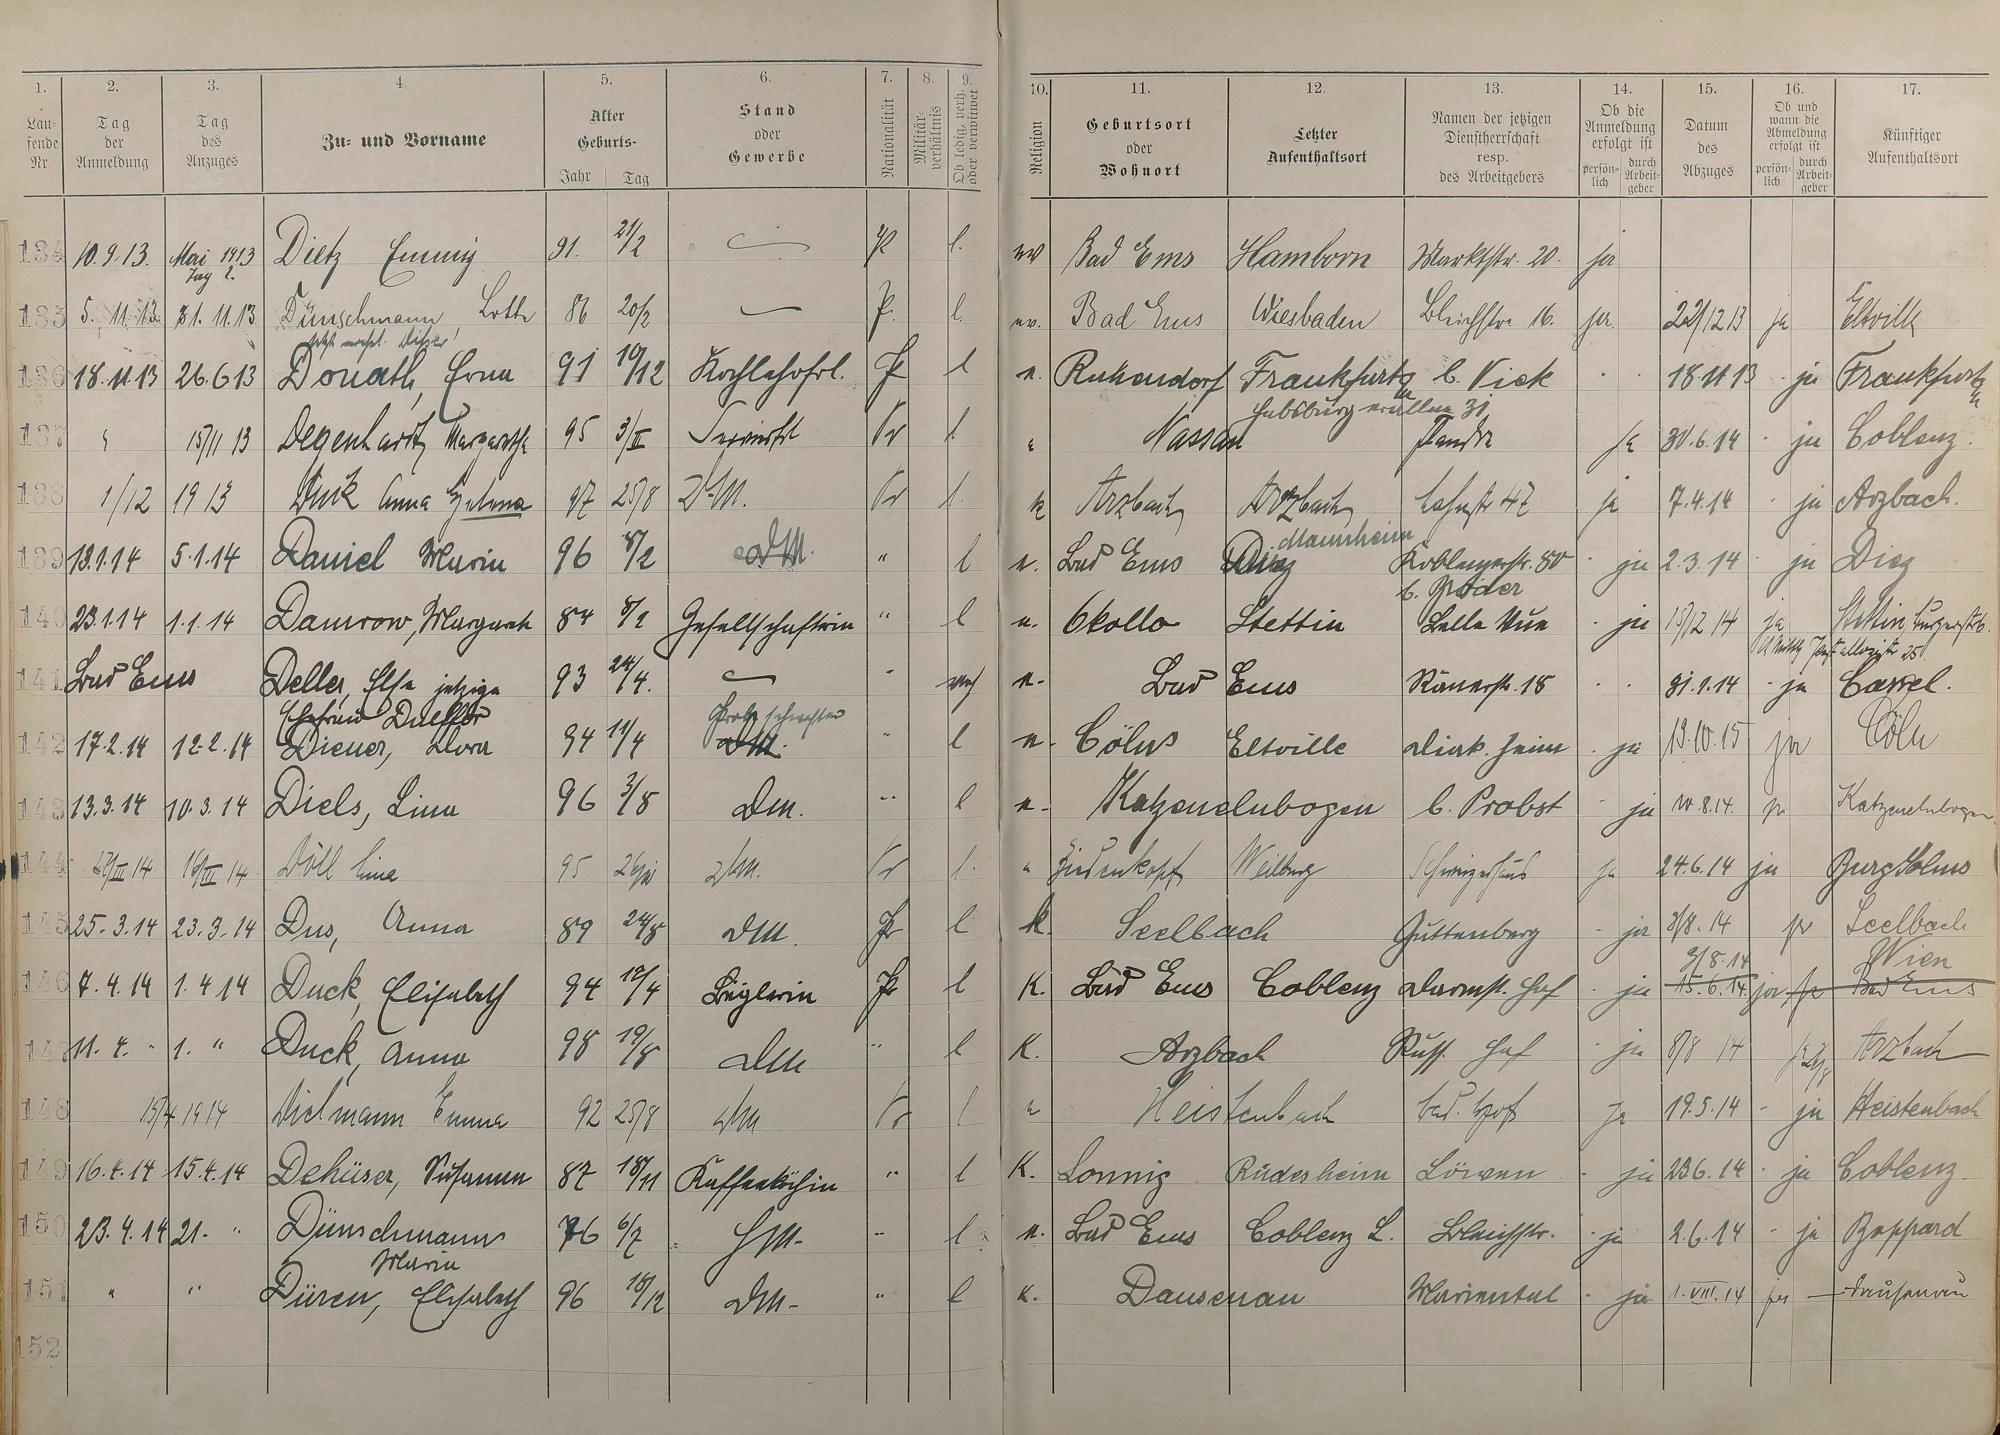 1. 2. 3. 4. 5. 6. 7. 8. 9. 10. 11. 12. 13. 14. 15. 16. 17.
Laufende Nr. Tag der Anmeldung Tag des Anzuges Zu- und Vorname Alter Geburts- Jahr Tag Stand oder Gewerbe Nationalität Militärverhältnis Ob ledig, verh. oder verwitwet Religion Geburtsort oder Wohnort Letzter Aufenthaltsort Namen der jetzigen Dienstherrschaft resp. des Arbeitgebers Ob die Anmeldung erfolgt ist persönlich durch Arbeitgeber Datum des Abzuges Ob und wann die Abmeldung erfolgt ist persönlich durch Arbeitgeber Künftiger Aufenthaltsort
134 10.9.13. Mai 1913 Dietz Emmy 91. 21/2 Pr l. ev Bad Ems Hamborn Marktstr. 20. ja
135 5. 11. 13. 1. 11. 13. Dünschmann Lotte 86 20/2 Pr. l. ev. Bad Ems Wiesbaden Bleichstr. 16. ja 22/12 13 ja Eltville
136 18.11.13 26.6.13 Donath, Erna 91 10/12 Kochlehrfrl. Pr l e. Frankfurt b. Vick 18.11.13 ja Frankfurt
Habsburgerallee 31
137 " 15/11 13 Degenhardt, Margarethe 95 3/II Pr l " Nassau ja 30.6.14 ja Coblenz.
138 1/12 1913 Duck Anna Helena 97 25/8 DM. Pr l. k Arzbach Arzbach Lahnstr 47 ja 7.4.14 ja Arzbach.
139 13.1.14 5.1.14 Daniel Maria 96 8/2 DM. " l e. Bad Ems Diez Mannheim Koblenzerstr. 80 ja 2.3.14 ja Diez
b. Röder
140 23.1.14 1.1.14 Damrow, Margarete 84 8/1 Gesellschafterin " l e. Stettin Belle Vue ja 15/12 14 ja Stettin
141 Bad Ems Deller, Else jetzige 93 24/4. " e. Bad Ems Römerstr. 18 31.1.14 ja Cassel.
Ehefrau
142 17.2.14 12.2.14 Diener, Dora 94 11/4 Probeschwester DM. " l e. Cöln Eltville Diak. Heim ja 13.10.15 ja Cöln
143 13.3.14 10.3.14 Diels, Lina 96 3/8 DM. " l e. Katzenelnbogen b. Probst ja 10.8.14. ja Katzenelnbogen
144 16/III 14 Döll Lina 95 DM. Pr l. " Biedenkopf Weilburg Schweizerhaus ja 24.6.14 ja Burgsolms
145 25.3.14 23.3.14 Dus, Anna 89 24/8 DM. Pr l k. Seelbach Guttenberg ja 3/8. 14 ja Seelbach
146 7.4.14 1.4.14 Duck, Elisabeth 94 19/4 Büglerin Pr l K. Bad Ems Coblenz Darmst. Hof ja 15.6.14. 3/8.14 ja Bad Ems Wien
147 11. 4. " 1. " Duck, Anna 98 19/8 DM " l K. Arzbach Russ. Hof ja 8/8 14 ja Arzbach
148 15/4 1914 Dielmann Emma 92 25/8 DM Pr l e Heistenbach ja 19.5.14 ja Heistenbach
149 16.4.14 15.4.14 Dehüser, Susanna 87 18/11 Kaffeeköchin " l K. Lonnig Rüdesheim Löwen ja 23.6.14 ja Coblenz.
150 23.4.14 21. " Dünschmann 76 6/7 HM. " l e. Bad Ems Coblenz L. Bleichstr. ja 2.6.14 ja Boppard
Maria
151 " " Düren, Elisabeth 96 18/12 DM. " l K. Dausenau Mariental ja 1.VIII.14 ja Dausenau
152